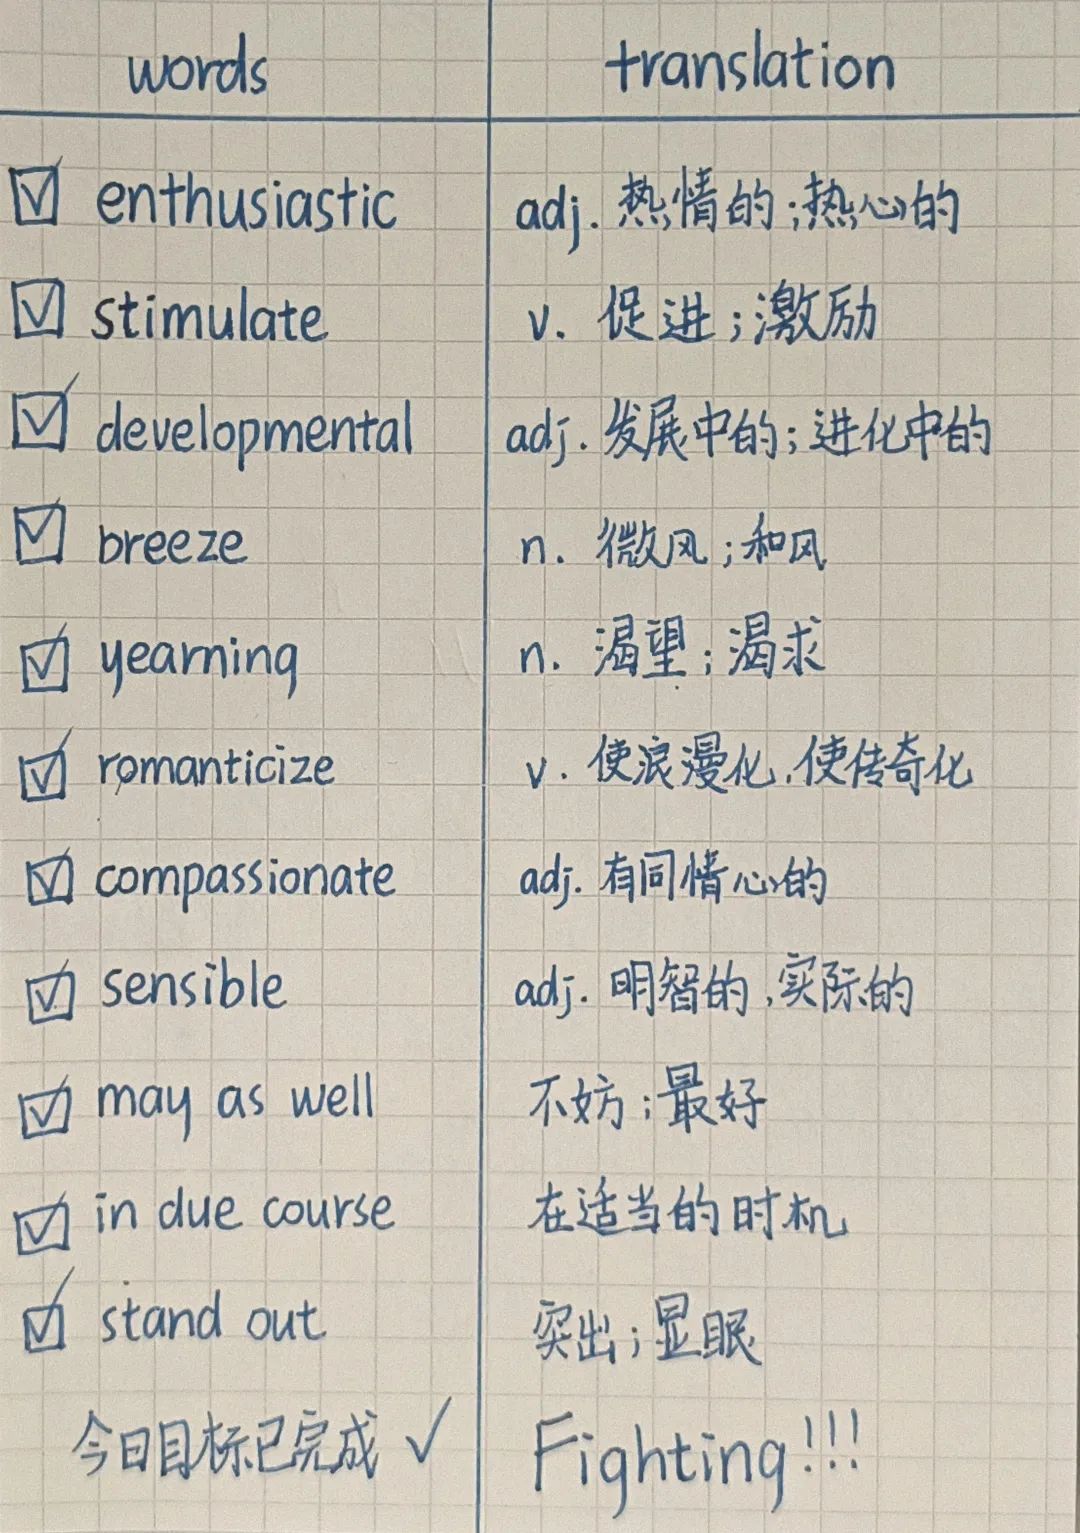 words translation
☑ enthusiastic adj. 热情的;热心的
☑ stimulate v. 促进;激励
☑ developmental adj. 发展中的;进化中的
☑ breeze n. 微风;和风
☑ yearning n. 渴望;渴求
☑ romanticize v. 使浪漫化,使传奇化
☑ compassionate adj. 有同情心的
☑ sensible adj. 明智的,实际的
☑ may as well 不妨;最好
☑ in due course 在适当的时机
☑ stand out 突出;显眼
今日目标已完成 ✓ Fighting!!!